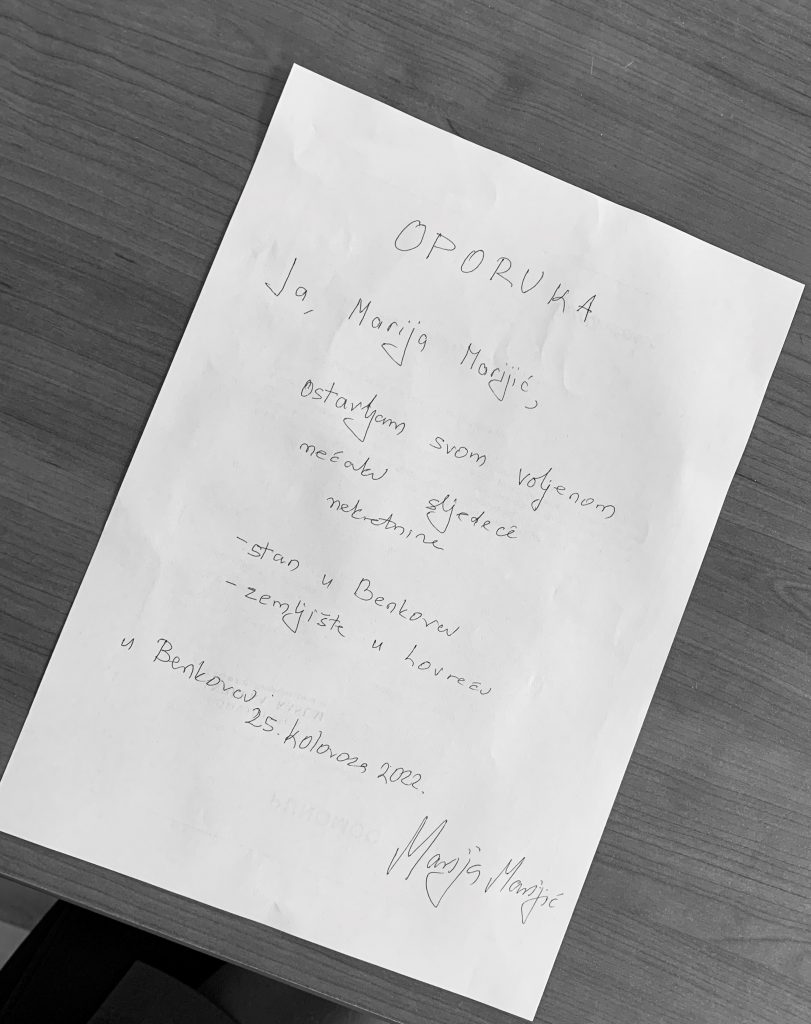 OPORUKA
Ja, Marija Marijić,
Ostavljam svom voljenom
nećaku sljedeće
nekretnine
-stan u Benkovcu
-zemljište u Lovrecu
u Benkovcu,
25. kolovoza 2022.
Marija Marijić